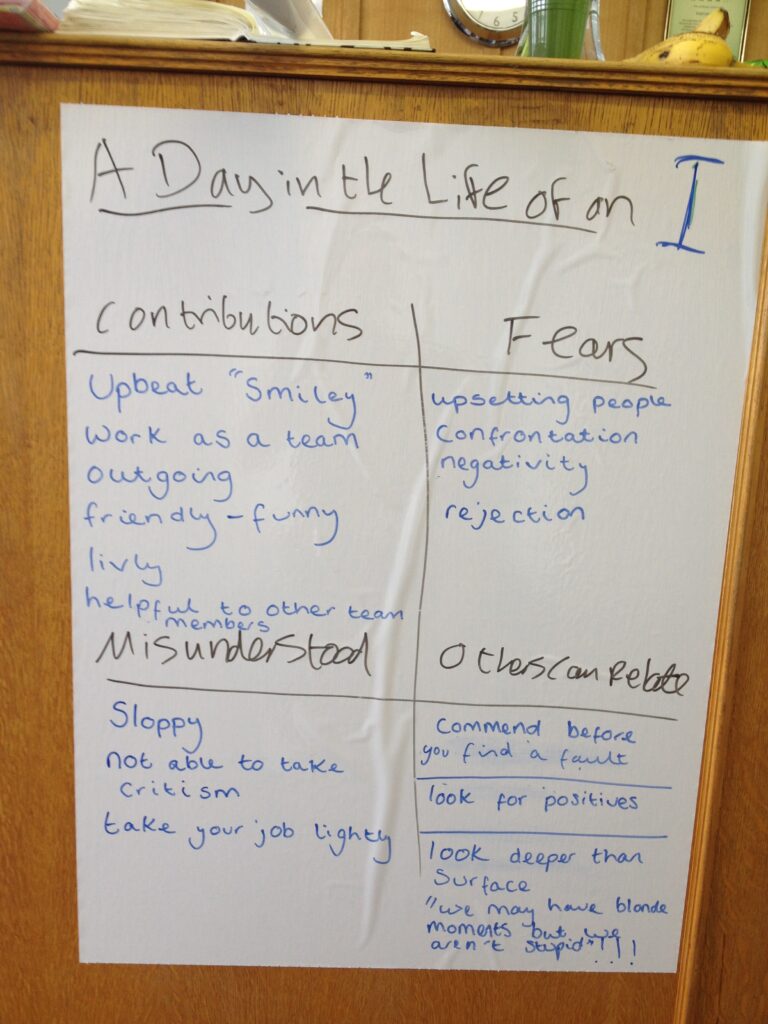 A Day in the Life of an I
Contributions
Upbeat "Smiley"
work as a team
outgoing
friendly - funny
livly
helpful to other team
members
Fears
upsetting people
Confrontation
negativity
rejection
Misunderstood
Sloppy
not able to take
critism
take your job lightly
Others can Relate
Commend before
you find a fault
look for positives
look deeper than
Surface
"we may have blonde
moments but we
aren't stupid"!!!